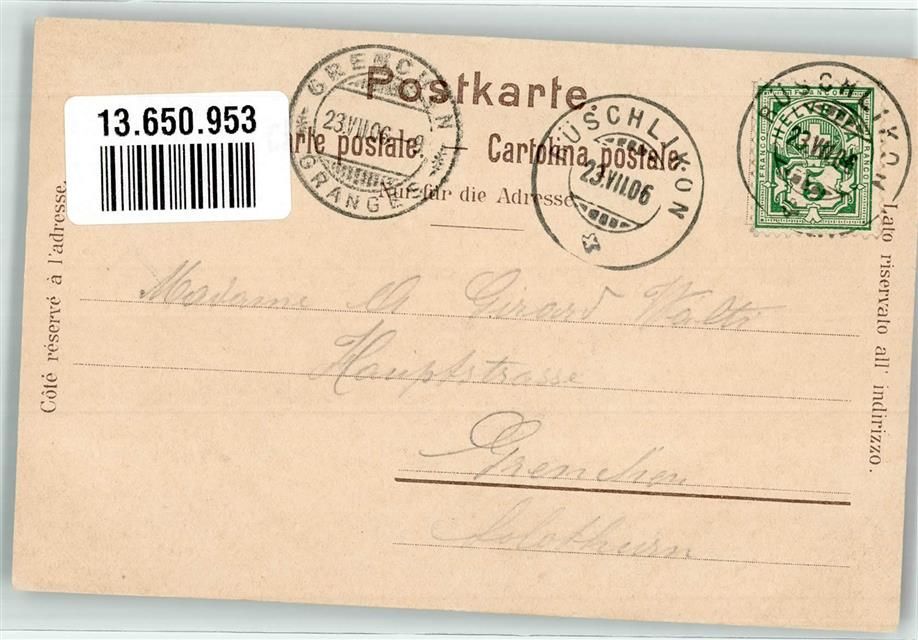 Postkarte.
13.650.953
GRENCHEN
23.VII.06
GRANGES
Carte postale. — Cartolina postale.
Nur für die Adresse.
RÜSCHLIKON
23.VII.06
RÜSCHLIKON
23.VII.06
FRANCO
HELVETIA
FRANCO
5
Côté réservé à l'adresse.
Lato riservato all' indirizzo.
Madame A Girard Wälti
Hauptstrasse
Grenchen
Solothurn